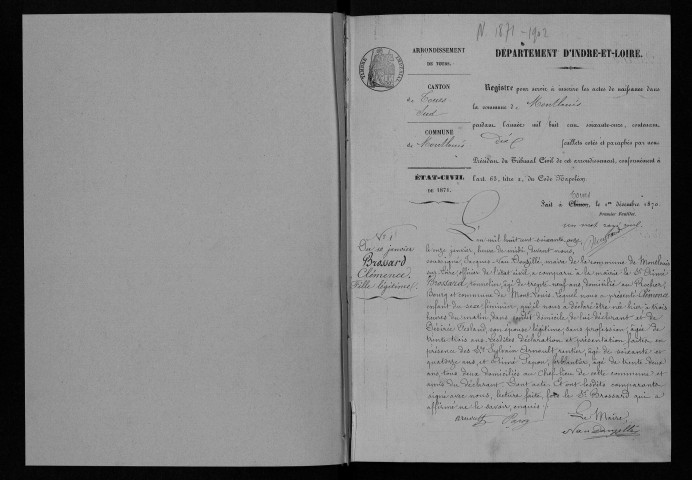 N. 1871-1902
ARRONDISSEMENT
DE TOURS.
CANTON
de Tours
Sud
COMMUNE
de Montlouis
ÉTAT-CIVIL
DE 1871.
DÉPARTEMENT D'INDRE-ET-LOIRE.
Registre pour servir à inscrire les actes de naissance dans
la commune de Montlouis
pendant l'année mil huit cent soixante-onze, contenant
dix feuillets cotés et paraphés par nous
Président du Tribunal Civil de cet arrondissement, conformément à
l'art. 63, titre 2, du Code Napoléon.
Tours
Fait à Chinon, le 1er décembre 1870
Premier Feuillet.
un mot rayé nul
N° 1
Du 10 janvier
Brossard
Clémence
Fille légitime
L'an mil huit cent soixante onze,
le onze janvier, heure de midi, devant nous,
maire de la commune de Montlouis
sur Loire, officier de l'état civil, a comparu à la mairie le Sr
Brossard, tonnelier, âgé de trente neuf ans domicilié au
Bourg et commune de Mont-Louis. Lequel nous a présenté Clémence
enfant du sexe féminin, qu'il nous a déclaré être née hier à trois
heures du matin, dans le domicile de lui déclarant et de
Désirée son épouse légitime, sans profession, âgée de
trente trois ans. Lesdites déclaration et présentation faites en
présence des Srs Sylvain Arnault, rentier, âgé de soixante et
quatorze ans, et âgé de trente deux
ans, tous deux domiciliés au Chef-lieu de cette commune et
du déclarant. Dont acte. Et ont lesdits comparants
signé avec nous, lecture faite, fors le Sr Brossard qui a
affirmé ne le savoir, enquis.
Le Maire,